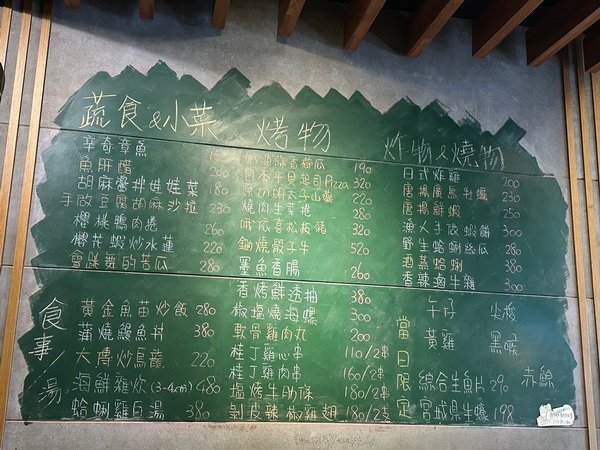 蔬食&小菜
辛奇章魚
魚肝醋
胡麻醬拌娃娃菜 180
手改豆腐胡麻沙拉 230
櫻桃鴨肉捲 260
櫻花蝦炒水蓮 220
會跳舞的苦瓜 280
烤物
190
日本干貝起司Pizza 320
220
燒肉生菜捲 280
哦依喜松板豬 320
鋤燒骰子牛 520
墨魚香腸 260
香烤鮮透抽 380
椒塩燒海螺 300
軟骨雞肉丸 200
桂丁雞心串 110/2串
桂丁雞肉串 160/2串
塩烤牛肋條 180/2串
剝皮辣椒雞翅 180/2支
炸物&燒物
日式炸雞 200
唐揚廣島牡蠣 230
唐揚鮮蝦 250
漁人手依蝦餅 300
野生蛤蜊絲瓜 280
酒蒸蛤蜊 380
香辣滷牛雜 300
食事/湯
黃金魚苗炒飯 280
蒲燒鰻魚丼 380
大陣炒烏龍 220
海鮮雞炊(3-4人份) 480
蛤蜊雞白湯 380
當日限定
午仔
尖梭
黃雞
黑喉
赤鯮
綜合生魚片 290
宮城県生蠔 198